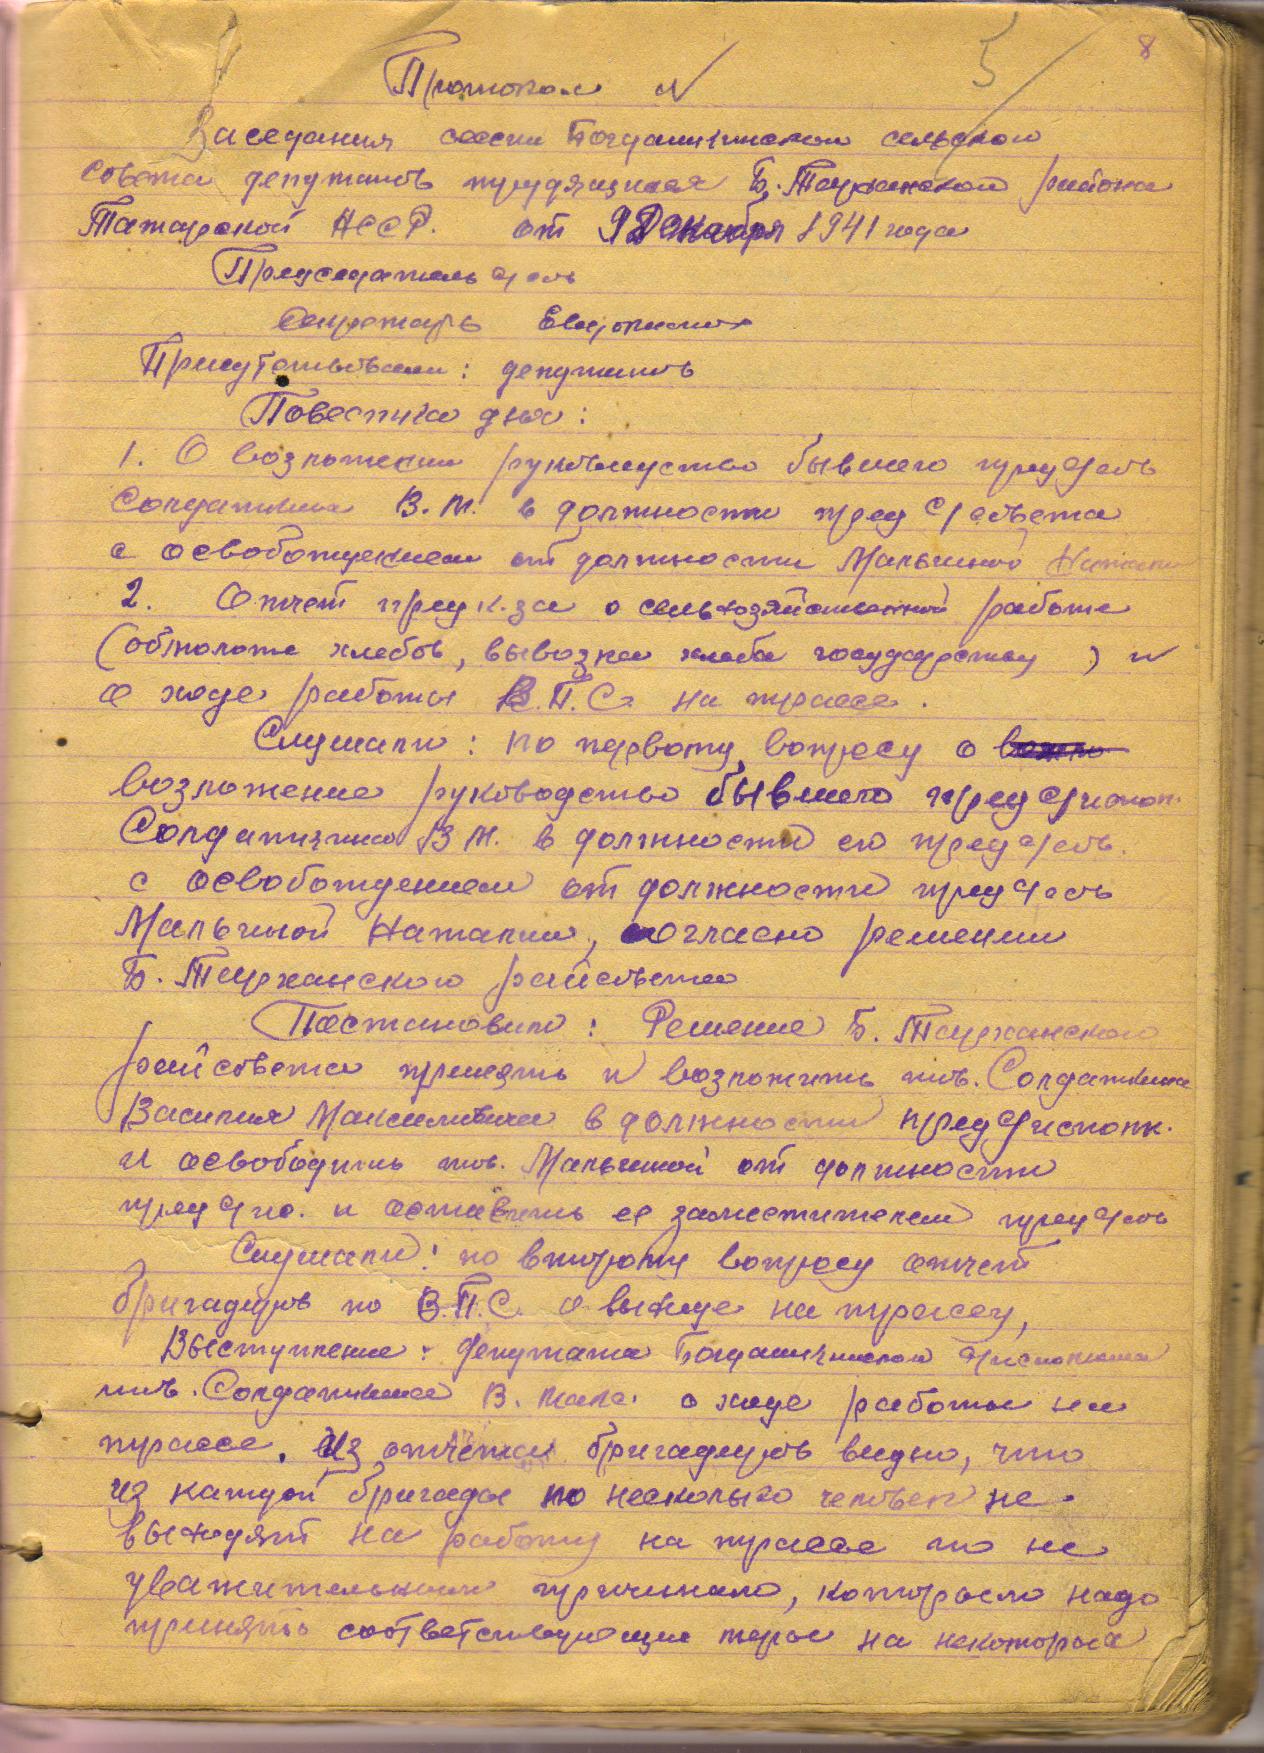 5
8
Протокол №
Заседания сессии Богдашкинском сельском
совета депутатов трудящихся Б. Тарханском района
Татарской АССР. от 9 Декабря 1941 года
Председатель
Секретарь
Присутствовали: депутатов
Повестка дня:
1. О возложении руководство бывшего пред
Солдаткина В. М. в должности пред с/совета
с освобождением от должности Мальчиной Натали
2. Отчет пред к-за о сельхозяйственной работе
(обмолоте хлебов, вывозка хлеба государству) и
о ходе работы В.П.С. на трассе.
Слушали: по первому вопросу о
возложение руководство бывшего пред
Солдаткина В М. в должности его пред
с освобождением от должности пред
Мальчиной Наталии, согласно решении
Б. Тарханского райсовета
Постановили: Решение Б. Тарханского
райсовета принять и возложить тов. Солдаткина
Василия Максимовича в должности пред
и освободить тов. Мальчиной от должности
пред и оставить ее заместителем пред
Слушали: по второму вопросу отчет
бригадиров по В.П.С. о выходе на трассу,
Выступление: депутата Богдашкинском
тов. Солдаткина В. Мак. о ходе работы на
трассе. Из отчетки бригадиров видно, что
из каждой бригады по несколько человек не
выходят на работу на трассе по не
уважительным причинам, которыми надо
принять соответствующие меры на некоторых